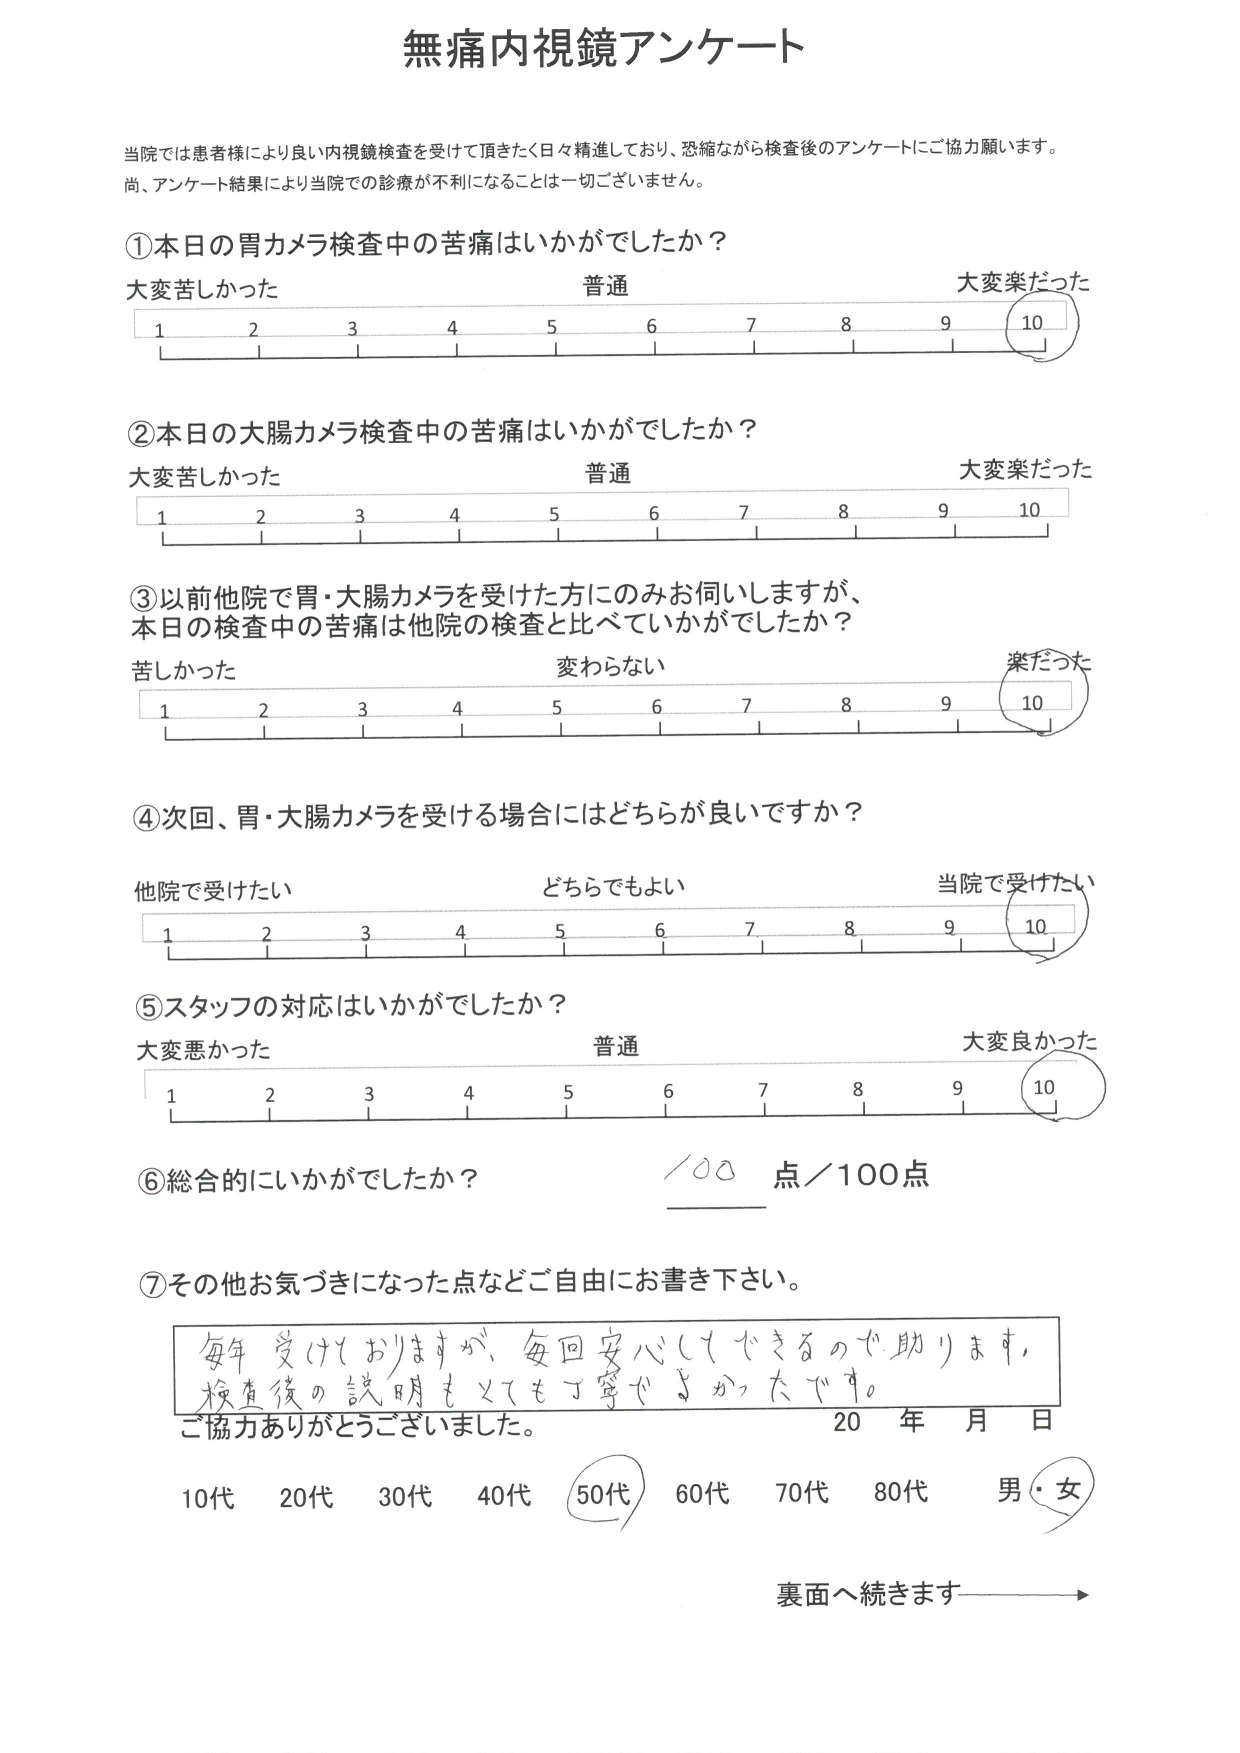 無痛内視鏡アンケート
当院では患者様により良い内視鏡検査を受けて頂きたく日々精進しており、恐縮ながら検査後のアンケートにご協力願います。
尚、アンケート結果により当院での診療が不利になることは一切ございません。
①本日の胃カメラ検査中の苦痛はいかがでしたか？
大変苦しかった 普通 大変楽だった
1 2 3 4 5 6 7 8 9 10
②本日の大腸カメラ検査中の苦痛はいかがでしたか？
大変苦しかった 普通 大変楽だった
1 2 3 4 5 6 7 8 9 10
③以前他院で胃・大腸カメラを受けた方にのみお伺いしますが、
本日の検査中の苦痛は他院の検査と比べていかがでしたか？
苦しかった 変わらない 楽だった
1 2 3 4 5 6 7 8 9 10
④次回、胃・大腸カメラを受ける場合にはどちらが良いですか？
他院で受けたい どちらでもよい 当院で受けたい
1 2 3 4 5 6 7 8 9 10
⑤スタッフの対応はいかがでしたか？
大変悪かった 普通 大変良かった
1 2 3 4 5 6 7 8 9 10
⑥総合的にいかがでしたか？ 100 点／100点
⑦その他お気づきになった点などご自由にお書き下さい。
毎年受けておりますが、毎回安心してできるので助ります。
検査後の説明もとても丁寧でよかったです。
ご協力ありがとうございました。 20 年 月 日
10代 20代 30代 40代 50代 60代 70代 80代 男・女
裏面へ続きます